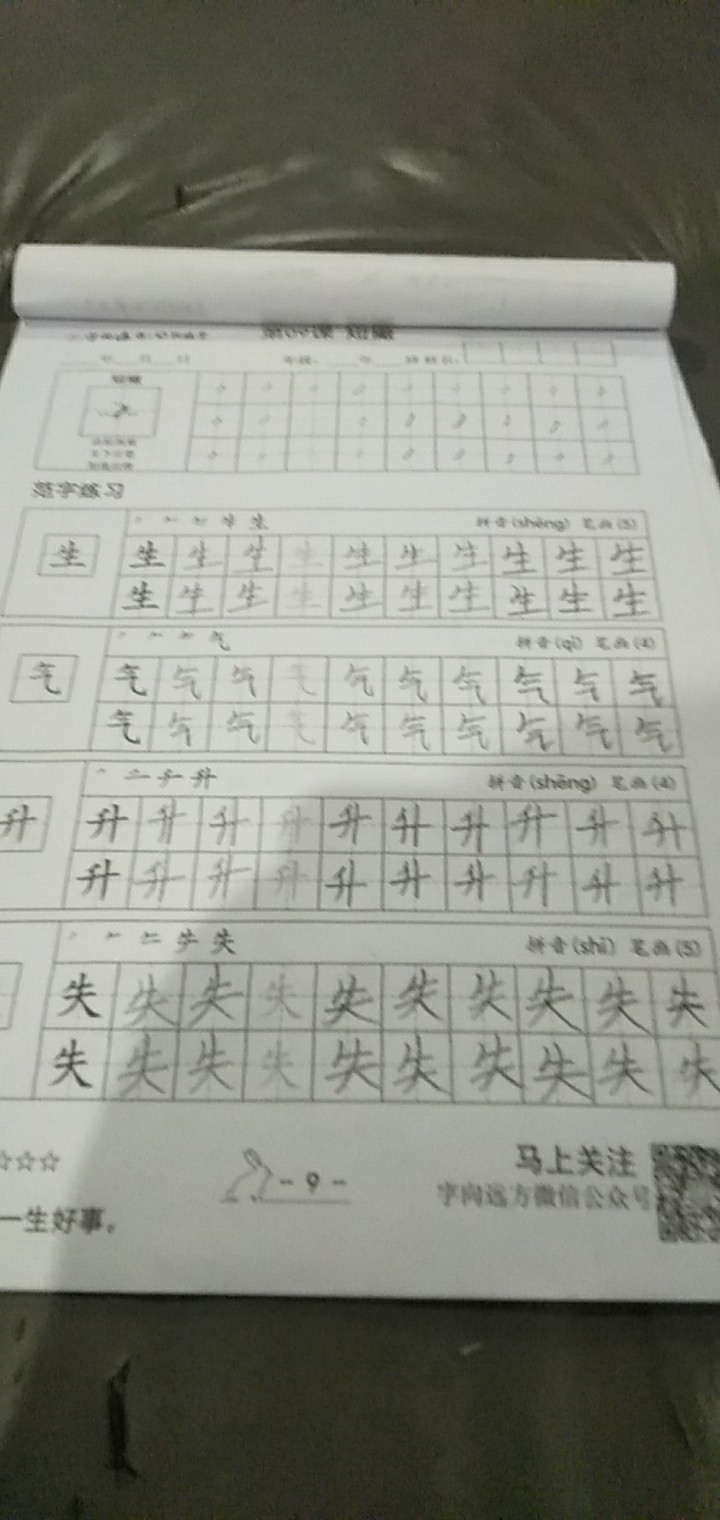 短撇
范字练习
生 拼音(shēng) 笔画(5)
生 生 生 生 生 生 生 生 生 生 生
生 生 生 生 生 生 生 生 生 生
气 拼音(qì) 笔画(4)
气 气 气 气 气 气 气 气 气 气 气
气 气 气 气 气 气 气 气 气 气
升 拼音(shēng) 笔画(4)
升 升 升 升 升 升 升 升 升 升 升
升 升 升 升 升 升 升 升 升 升
失 拼音(shī) 笔画(5)
失 失 失 失 失 失 失 失 失 失
失 失 失 失 失 失 失 失 失 失
☆☆☆
- 9 -
马上关注
字向远方微信公众号
一生好事。